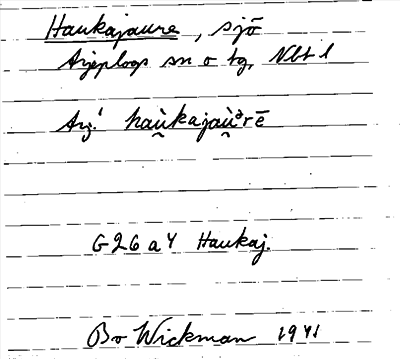 Haukajaure, sjö
Arjeplogs sn o tg. Nbt l
Arj.
G 26 a Y Haukaj.
Bo Wickman 1941